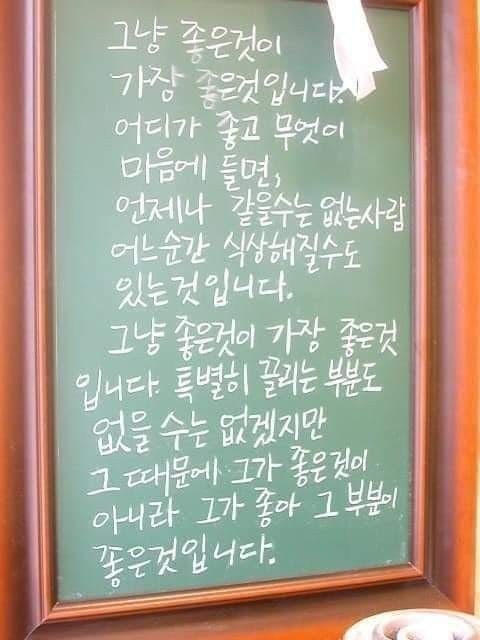 그냥 좋은것이
가장 좋은것입니다.
어디가 좋고 무엇이
마음에 들면,
언제나 같을수는 없는사람
어느순간 식상해질수도
있는것입니다.
그냥 좋은것이 가장 좋은것
입니다. 특별히 끌리는 부분도
없을 수는 없겠지만
그 때문에 그가 좋은것이
아니라 그가 좋아 그 부분이
좋은것입니다.